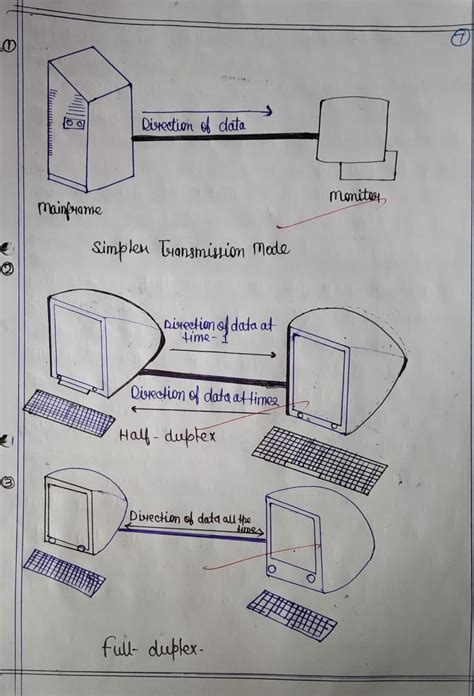 7
1
Direction of data
Mainframe
Monitor
Simplex Transmission Mode
2
Direction of data at
time-1
Direction of data at time2
Half-duplex
3
Direction of data all the
time
Full-duplex-